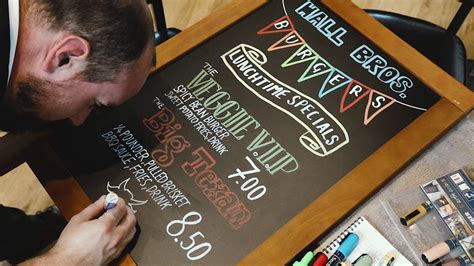 HALL BROS.
BURGERS
LUNCHTIME SPECIALS
THE VEGGIE V.I.P
SPICY BEAN BURGER
SWEET POTATO FRIES, DRINK
7.00
THE Big Texan
¼ POUNDER, PULLED BRISKET
BBQ SAUCE FRIES, DRINK
8.50